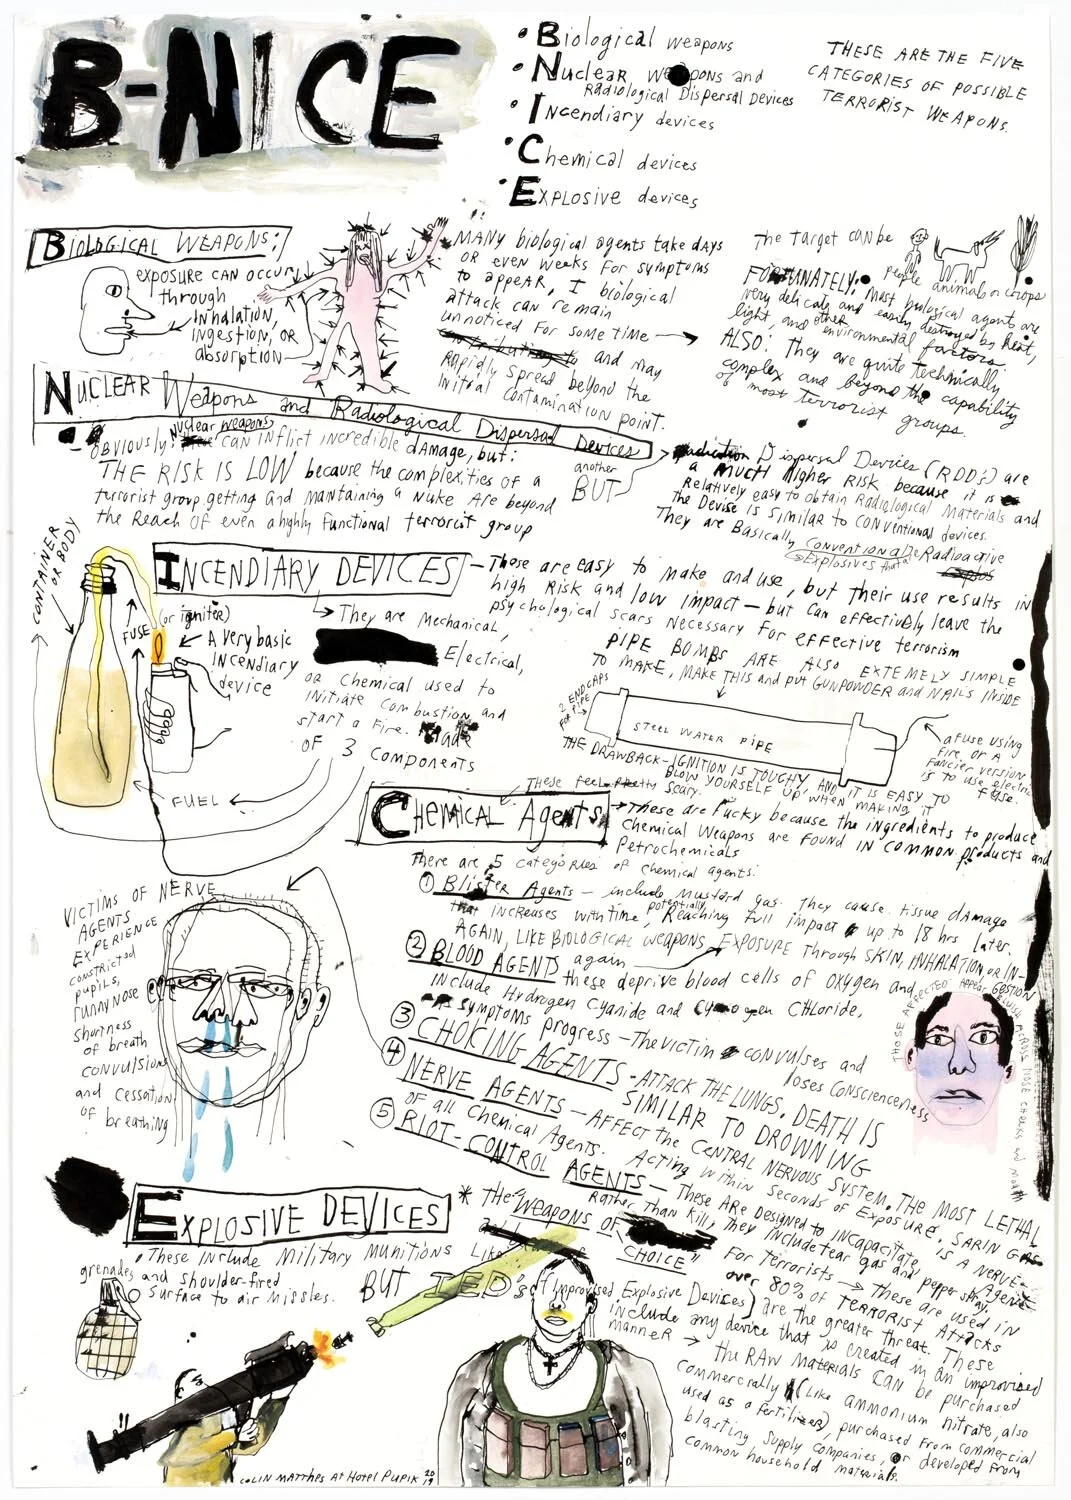 B-NICE
• Biological weapons
• Nuclear weapons and
Radiological Dispersal Devices
• Incendiary devices
• Chemical devices
• Explosive devices
THESE ARE THE FIVE
CATEGORIES OF POSSIBLE
TERRORIST WEAPONS.
BIOLOGICAL WEAPONS:
EXPOSURE CAN OCCUR
through
INHALATION,
INGESTION, OR
absorption
MANY biological agents take days
OR even weeks FOR symptoms
to appear, I biological
attack can remain
unnoticed for some time
and may
Rapidly spread beyond the
Initial contamination point.
The target can be
people animals or crops
FORTUNATELY, most biological agents are
very delicate and easily destroyed by heat,
light, and other environmental factors
ALSO: They are quite technically
complex and beyond the capability
of most terrorist groups.
NUCLEAR Weapons and Radiological Dispersal Devices
OBVIOUSLY: Nuclear weapons CAN INFLICT INCREDIBLE damage, but:
THE RISK IS LOW because the complexities of a
terrorist group getting and maintaining a nuke are beyond
the Reach of even a highly functional terrorist group
another
BUT
Dispersal Devices (RDD's) are
a MUCH higher RISK because it is
Relatively easy to obtain Radiological Materials and
The Devise is similar to conventional devices.
They are Basically Conventional Radioactive
Explosives that
CONTAINER
OR BODY
INCENDIARY DEVICES
These are easy to make and use, but their use results in
high Risk and low impact — but can effectively leave the
psychological scars necessary for effective terrorism
FUSE (or igniter)
A very basic
INCENDIARY
device
They are mechanical,
Electrical,
or Chemical used to
initiate Combustion and
start a fire. Made
OF 3 Components
FUEL
PIPE BOMBS ARE ALSO EXTEMELY SIMPLE
TO MAKE, MAKE THIS and put GUNPOWDER and NAILS INSIDE
2 END CAPS
FOR PIPE
STEEL WATER PIPE
a Fuse using
fire or a
fancier version
is to use electric
fuse.
THE DRAWBACK - IGNITION IS TOUCHY, AND IT IS EASY TO
BLOW YOURSELF UP WHEN MAKING IT
These feel scary.
CHEMICAL Agents
These are Fucky because the ingredients to produce
Chemical Weapons are found IN COMMON products and
Petrochemicals
There are 5 categories of chemical agents:
① Blister Agents — include Mustard gas. They cause tissue damage
that increases with time, potentially Reaching full impact up to 18 hrs later.
AGAIN, LIKE BIOLOGICAL weapons EXPOSURE through SKIN, INHALATION, OR IN-
GESTION
② BLOOD AGENTS again these deprive blood cells of oxygen and
include Hydrogen cyanide and cyanogen chloride,
symptoms progress — The victim convulses and
loses Conscienceness
③ CHOKING AGENTS - ATTACK THE LUNGS. DEATH IS
SIMILAR TO DROWNING
④ NERVE AGENTS — AFFECT the CENTRAL NERVOUS SYSTEM. THE MOST LETHAL
of all Chemical Agents. Acting within seconds of Exposure. SARIN GAS
IS A NERVE-
Agent
⑤ RIOT-CONTROL AGENTS — THESE ARE Designed to INCAPACITATE
Rather than kill, they include tear gas and pepper spray.
THOSE AFFECTED APPEAR BLUISH ACROSS NOSE CHEEKS and MOUTH
VICTIMS OF NERVE
AGENTS
EXPERIENCE
constricted
pupils,
runny nose
shortness
of breath
convulsions
and cessation
of breathing
EXPLOSIVE DEVICES
* THE "Weapons OF
CHOICE"
FOR Terrorists → These are used in
over 80% of TERRORIST Attacks
• These include Military munitions Like
grenades and shoulder-fired
surface to air missles.
BUT IED's (Improvised Explosive Devices) are the greater threat. These
include any device that is created in an improvised
manner → the RAW materials can be purchased
commercially (Like ammonium nitrate, also
used as a fertilizer), purchased from commercial
blasting supply companies, or developed from
common household materials.
COLIN MATTHES AT HOTEL PUPIK 2019